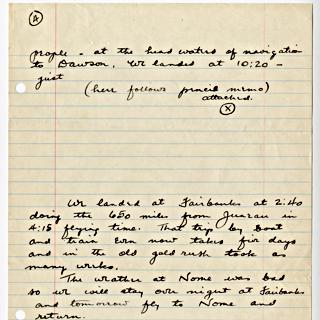 A
people - at the head waters of navigation
to Dawson. We landed at 10:20 -
just
(here follows pencil memo)
attached.
X
We landed at Fairbanks at 2:40
doing the 650 miles from Juneau in
4:15 flying time. That trip by boat
and train even now takes five days
and in the old gold rush took as
many weeks.
The weather at Nome was bad
so we will stay over night at Fairbanks
and tomorrow fly to Nome and
return.